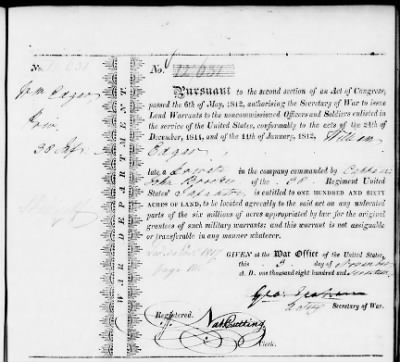 No. 12,631
No. 12,631
Wm Edgar,
Priv
38 Infy
WAR DEPARTMENT.
Pursuant to the second section of an Act of Congress,
passed the 6th of May, 1812, authorising the Secretary of War to issue
Land Warrants to the noncommissioned Officers and Soldiers enlisted in
the service of the United States, conformably to the acts of the 24th of
December, 1811, and of the 11th January, 1812, William
Edgar
late a Private in the company commanded by Captain
John of the 38 Regiment United
States Infantry, is entitled to ONE HUNDRED AND SIXTY
ACRES OF LAND, to be located agreeably to the said act on any unlocated
parts of the six millions of acres appropriated by law for the original
grantees of such military warrants; and this warrant is not assignable
or transferable in any manner whatever.
GIVEN at the War Office of the United States,
this day of November
A. D. one thousand eight hundred and
Geo. Graham
Secretary of War.
Registered.
Nath Cutting
Clerk.